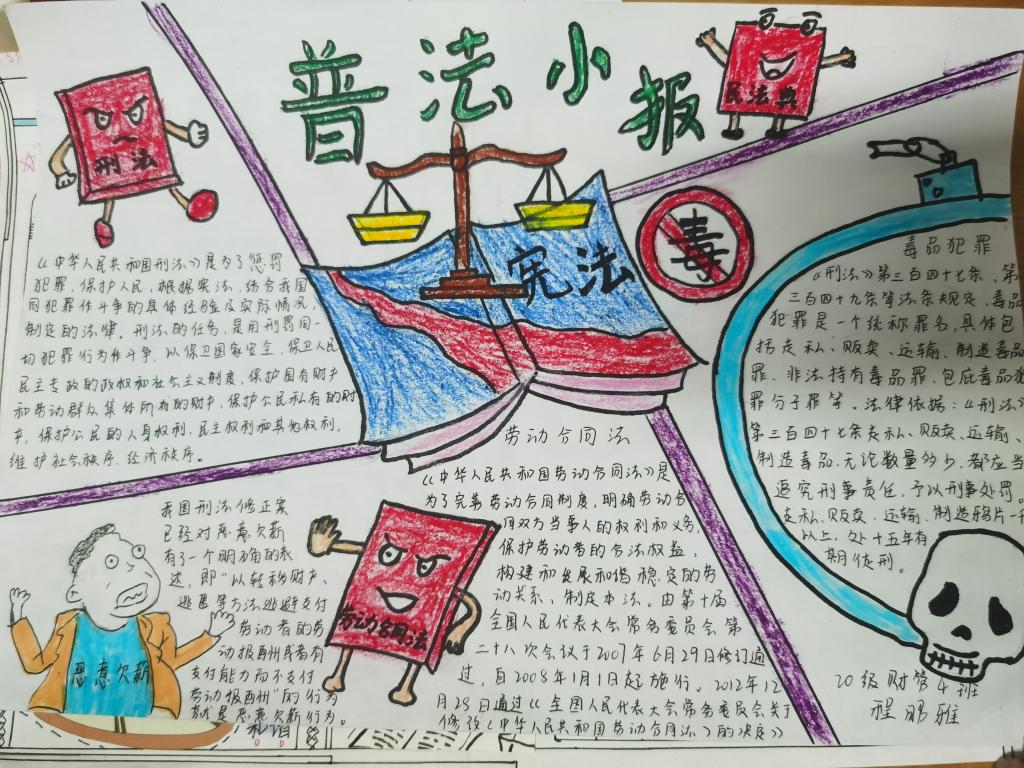 普法小报
刑法
民法典
宪法
毒
《中华人民共和国刑法》是为了惩罚
犯罪，保护人民，根据宪法，结合我国
同犯罪作斗争的具体经验及实际情况，
制定的法律。刑法的任务，是用刑罚同一
切犯罪行为作斗争，以保卫国家安全，保卫人民
民主专政的政权和社会主义制度，保护国有财产
和劳动群众集体所有的财产，保护公民私有的财
产，保护公民的人身权利、民主权利和其他权利，
维护社会秩序、经济秩序。
毒品犯罪
《刑法》第三百四十七条、第
三百四十九条等法条规定，毒品
犯罪是一个统称罪名，具体包
括走私、贩卖、运输、制造毒品
罪、非法持有毒品罪、包庇毒品犯
罪分子罪等。法律依据：《刑法》
第三百四十七条走私、贩卖、运输、
制造毒品，无论数量多少，都应当
追究刑事责任，予以刑事处罚。
走私、贩卖、运输、制造鸦片一千
以上，处十五年有
期徒刑。
我国刑法修正案
已经对恶意欠薪
有了一个明确的表
达，即“以转移财产、
逃匿等方法逃避支付
劳动者的劳
动报酬或者有
支付能力而不支付
劳动报酬”的行为
就是恶意欠薪行为。
恶意欠薪
劳动合同法
劳动合同法
《中华人民共和国劳动合同法》是
为了完善劳动合同制度，明确劳动合
同双方当事人的权利和义务，
保护劳动者的合法权益，
构建和发展和谐稳定的劳
动关系，制定本法。由第十届
全国人民代表大会常务委员会第
二十八次会议于2007年6月29日修订通
过，自2008年1月1日起施行。2012年12
月28日通过《全国人民代表大会常务委员会关于
修改《中华人民共和国劳动合同法》的决定》
20级财管4班
程鹏雅